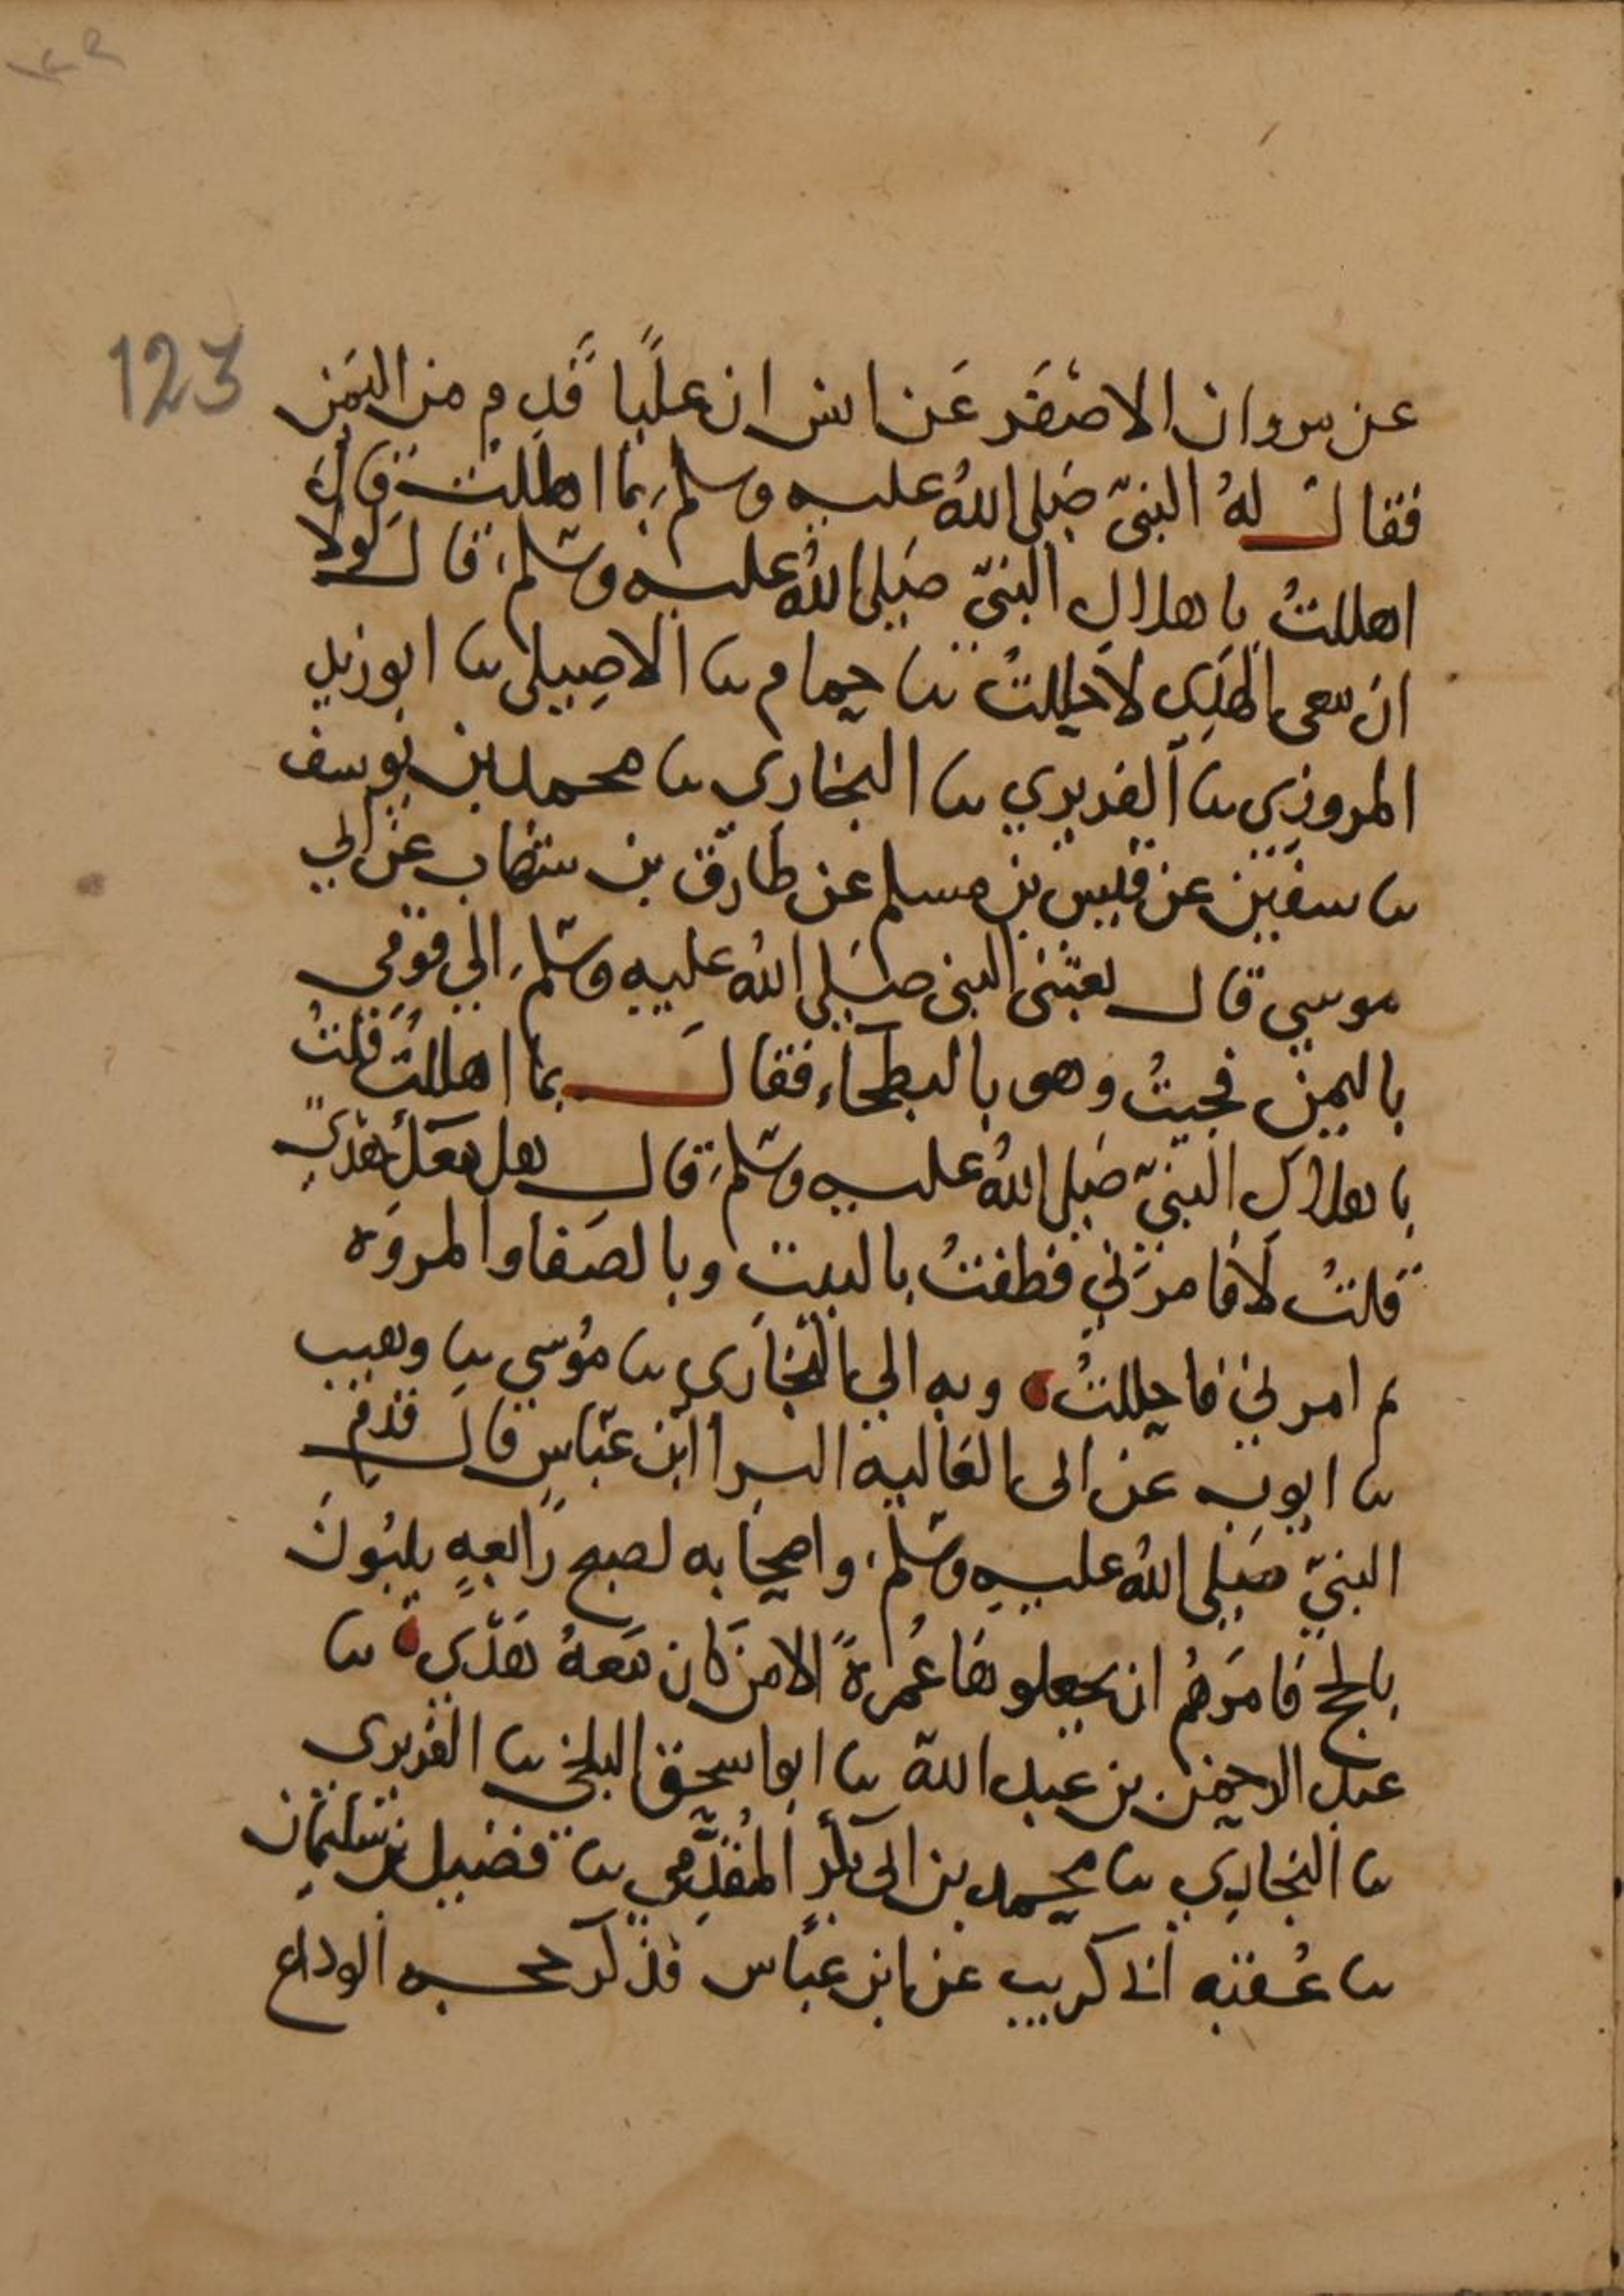 123
عن مروان الاصفر عن انس ان عليا قدم من اليمن
فقال له النبي صلى الله عليه وسلم بما اهللت قال
اهللت باهلال النبي صلى الله عليه وسلم قال لولا
ان معى الهدي لاحللت نا حمام نا الاصيلي نا ابو زيد
المروزي نا الفربري نا البخاري نا محمد بن يوسف
نا سفين عن قيس بن مسلم عن طارق بن شهاب عن ابي
موسى قال بعثني النبي صلى الله عليه وسلم الي قومي
باليمن فجيت وهو بالبطحاء فقال بما اهللت قلت
باهلال النبي صلى الله عليه وسلم قال هل معك هدي
قلت لا فامرني فطفت بالبيت وبالصفا والمروه
ثم امرني فاحللت وبه الي البخاري نا موسي نا وهيب
نا ايوب عن ابى العاليه البرا ابن عباس قال قدم
النبي صلى الله عليه وسلم واصحابه لصبح رابعه يلبون
بالحج فامرهم ان يجعلوها عمرة الا من كان معه هدي نا
عبد الرحمن بن عبد الله نا ابو اسحق البلخي نا الفربرى
نا البخاري نا محمد بن ابي بكر المقدمي نا فضيل بن سليمان
نا عقبه انا كريب عن ابن عباس فذكر حجه الوداع